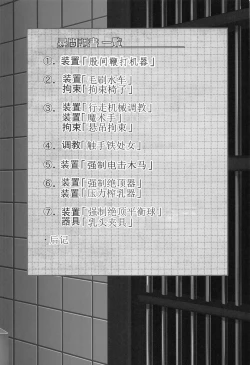 尋問調書一覧
①. 装置「股间鞭打机器」
②. 装置「毛刷水车」
拘束「拘束椅子」
③. 装置「行走机械调教」
装置「魔术手」
拘束「悬吊拘束」
④. 调教「触手铁处女」
⑤. 装置「强制电击木马」
⑥. 装置「强制绝顶器」
装置「压力榨乳器」
⑦. 装置「强制绝顶平衡球」
器具「乳头夹具」
·后记